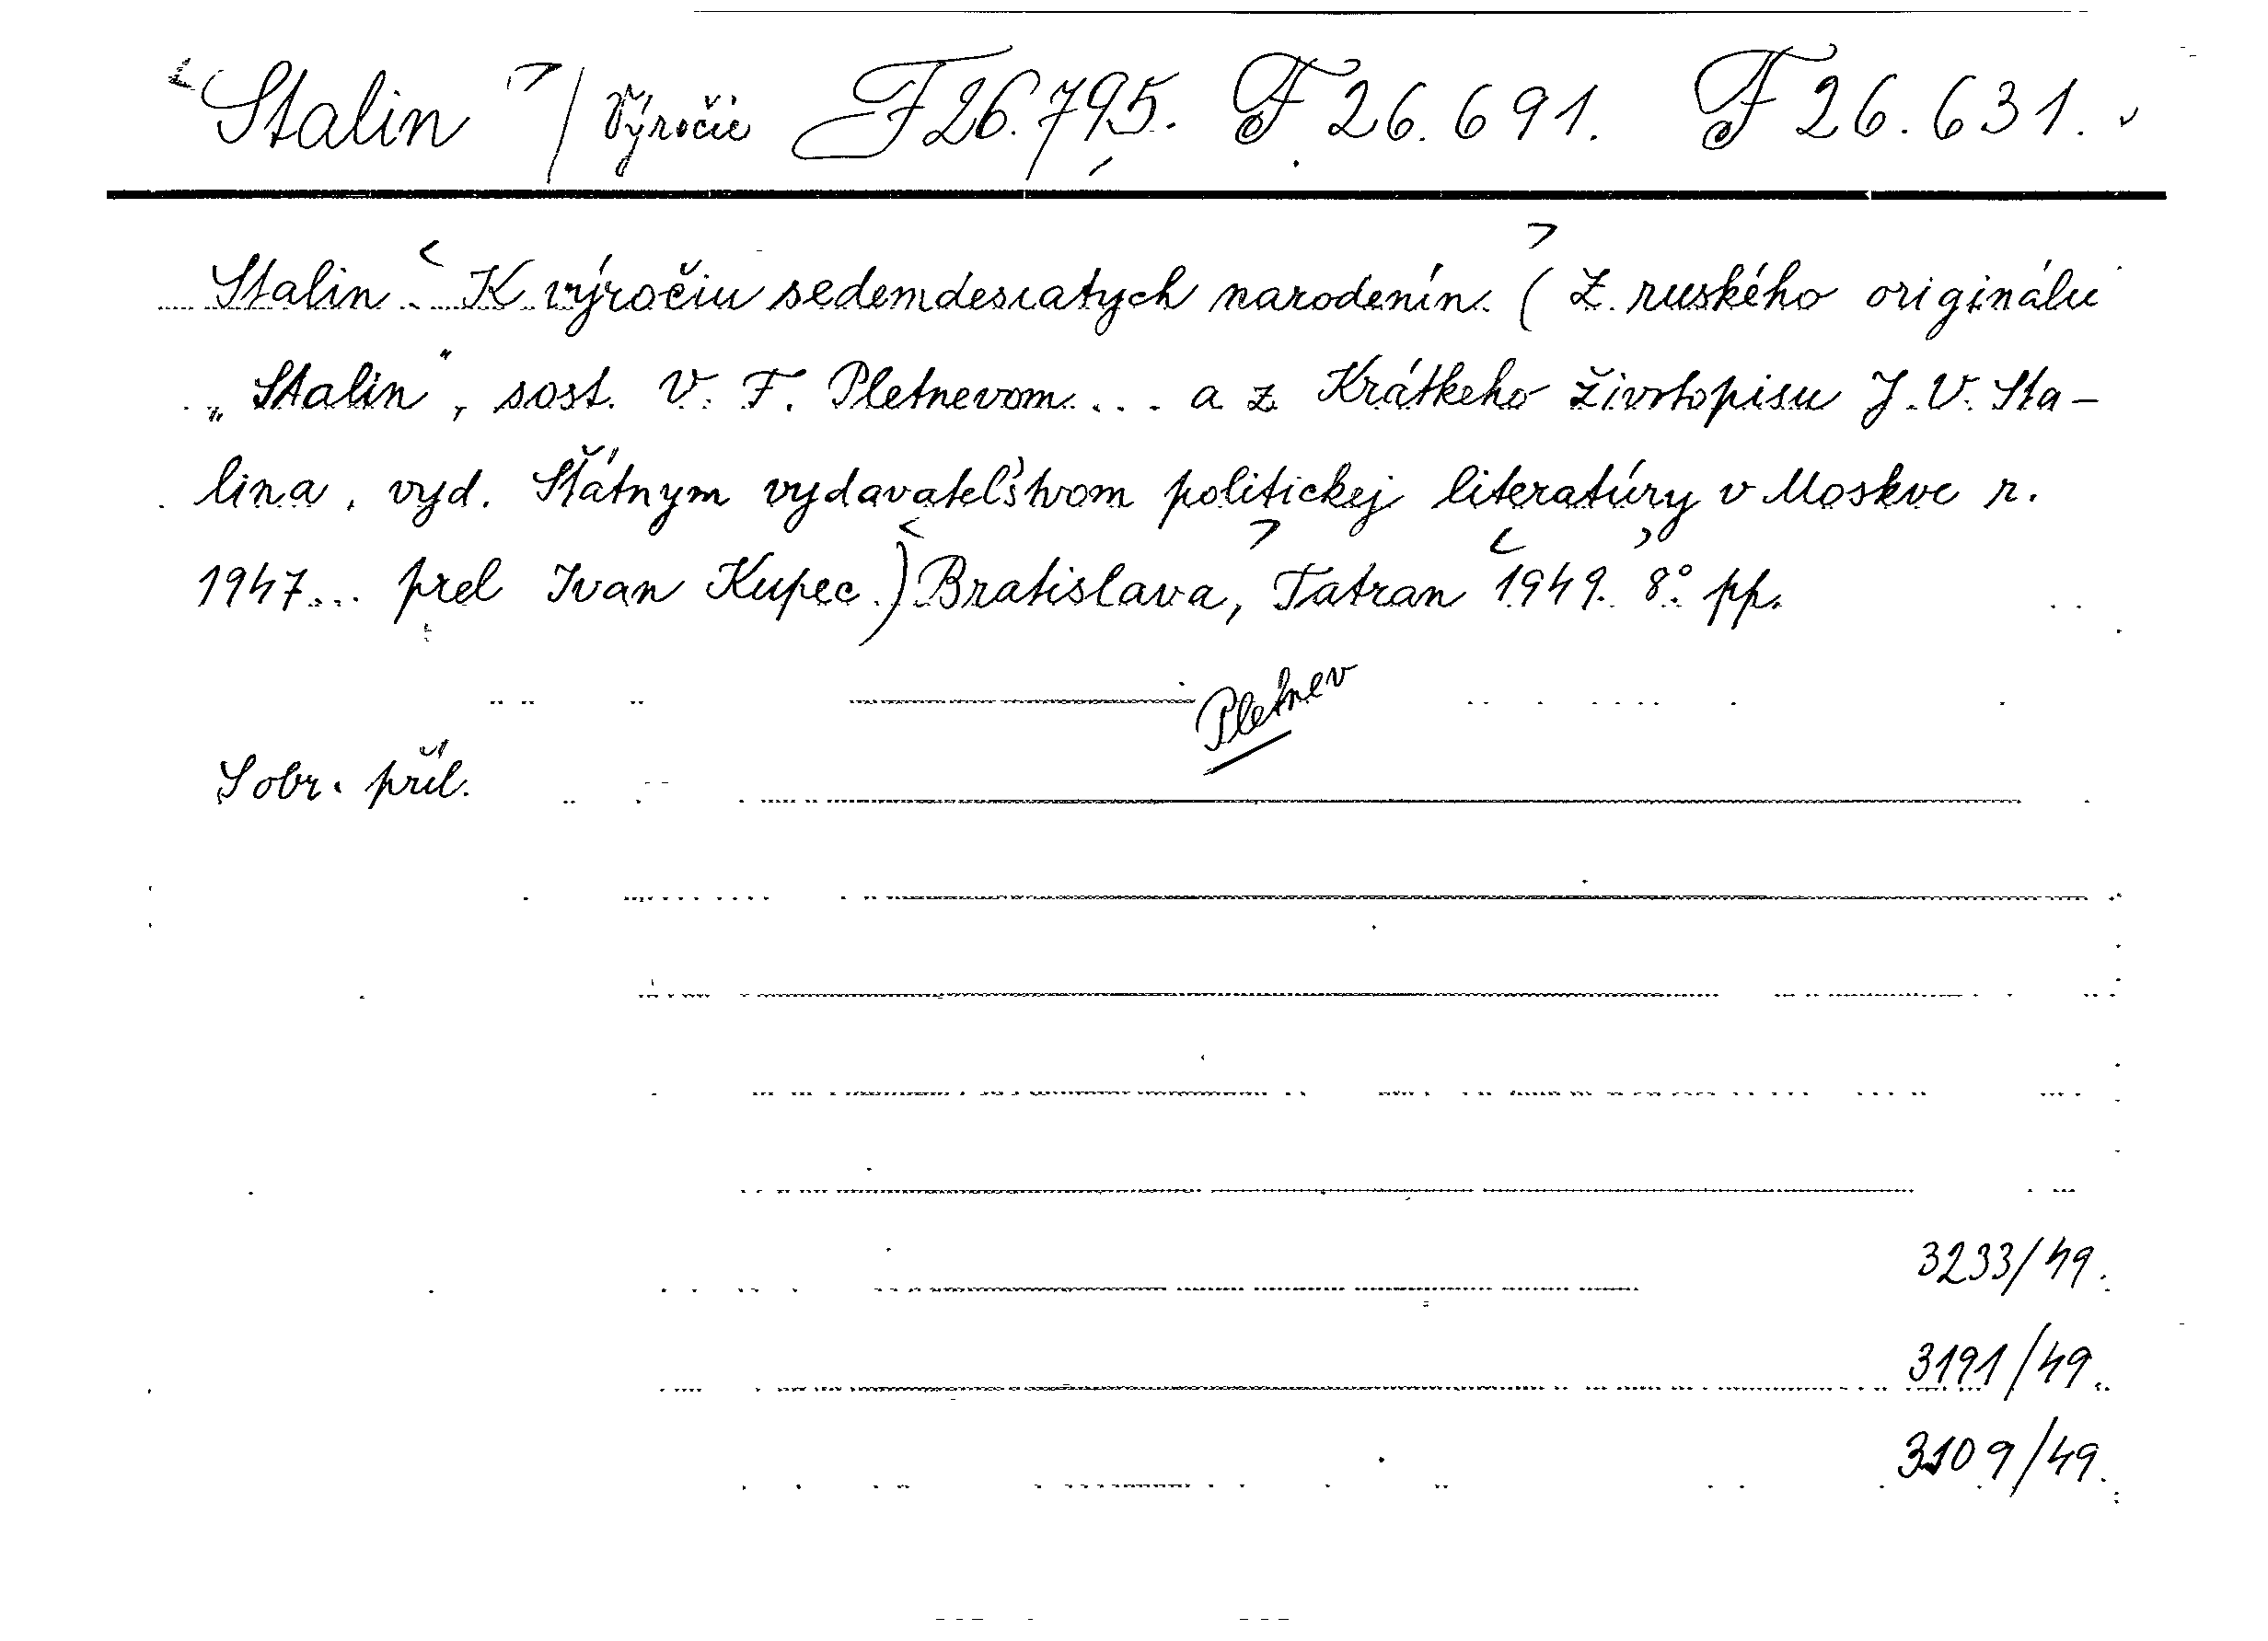 Stalin / Výročie F 26.795. F 26.691. F 26.631.
Stalin. K výročiu sedemdesiatych narodenín. (Z ruského originálu
„Stalin", sost. V. F. Pletnevom... a z Krátkeho životopisu J. V. Sta-
lina, vyd. Štátnym vydavateľstvom politickej literatúry v Moskve r.
1947... prel Ivan Kupec.) Bratislava, Tatran 1949. 8° pp.
Pletnev
S obr. příl.
3233/49.
3191/49.
3109/49.